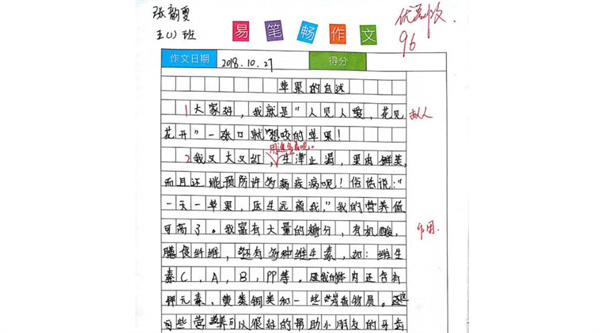 张韵雯
五(1)班
易笔畅作文
优
96
作文日期 2018.10.27 得分
苹果的自述
1大家好,我就是"人见人爱,花见
花开"一张口就想咬的苹果!
拟人
2我又大又红,生津止渴,果肉鲜美,
而且还能预防许多病疾病呢!俗话说:"
一天一苹果,医生远离我,"我的营养值
可高了。我富有大量的糖分,有机酸,
作用
膳食纤维,还有各种维生素,如:维生
素C,A,B,PP等。我的体内还含有
钾元素,黄类铜类和一些营养物质。
营养可以很好的帮助小朋友的牙齿